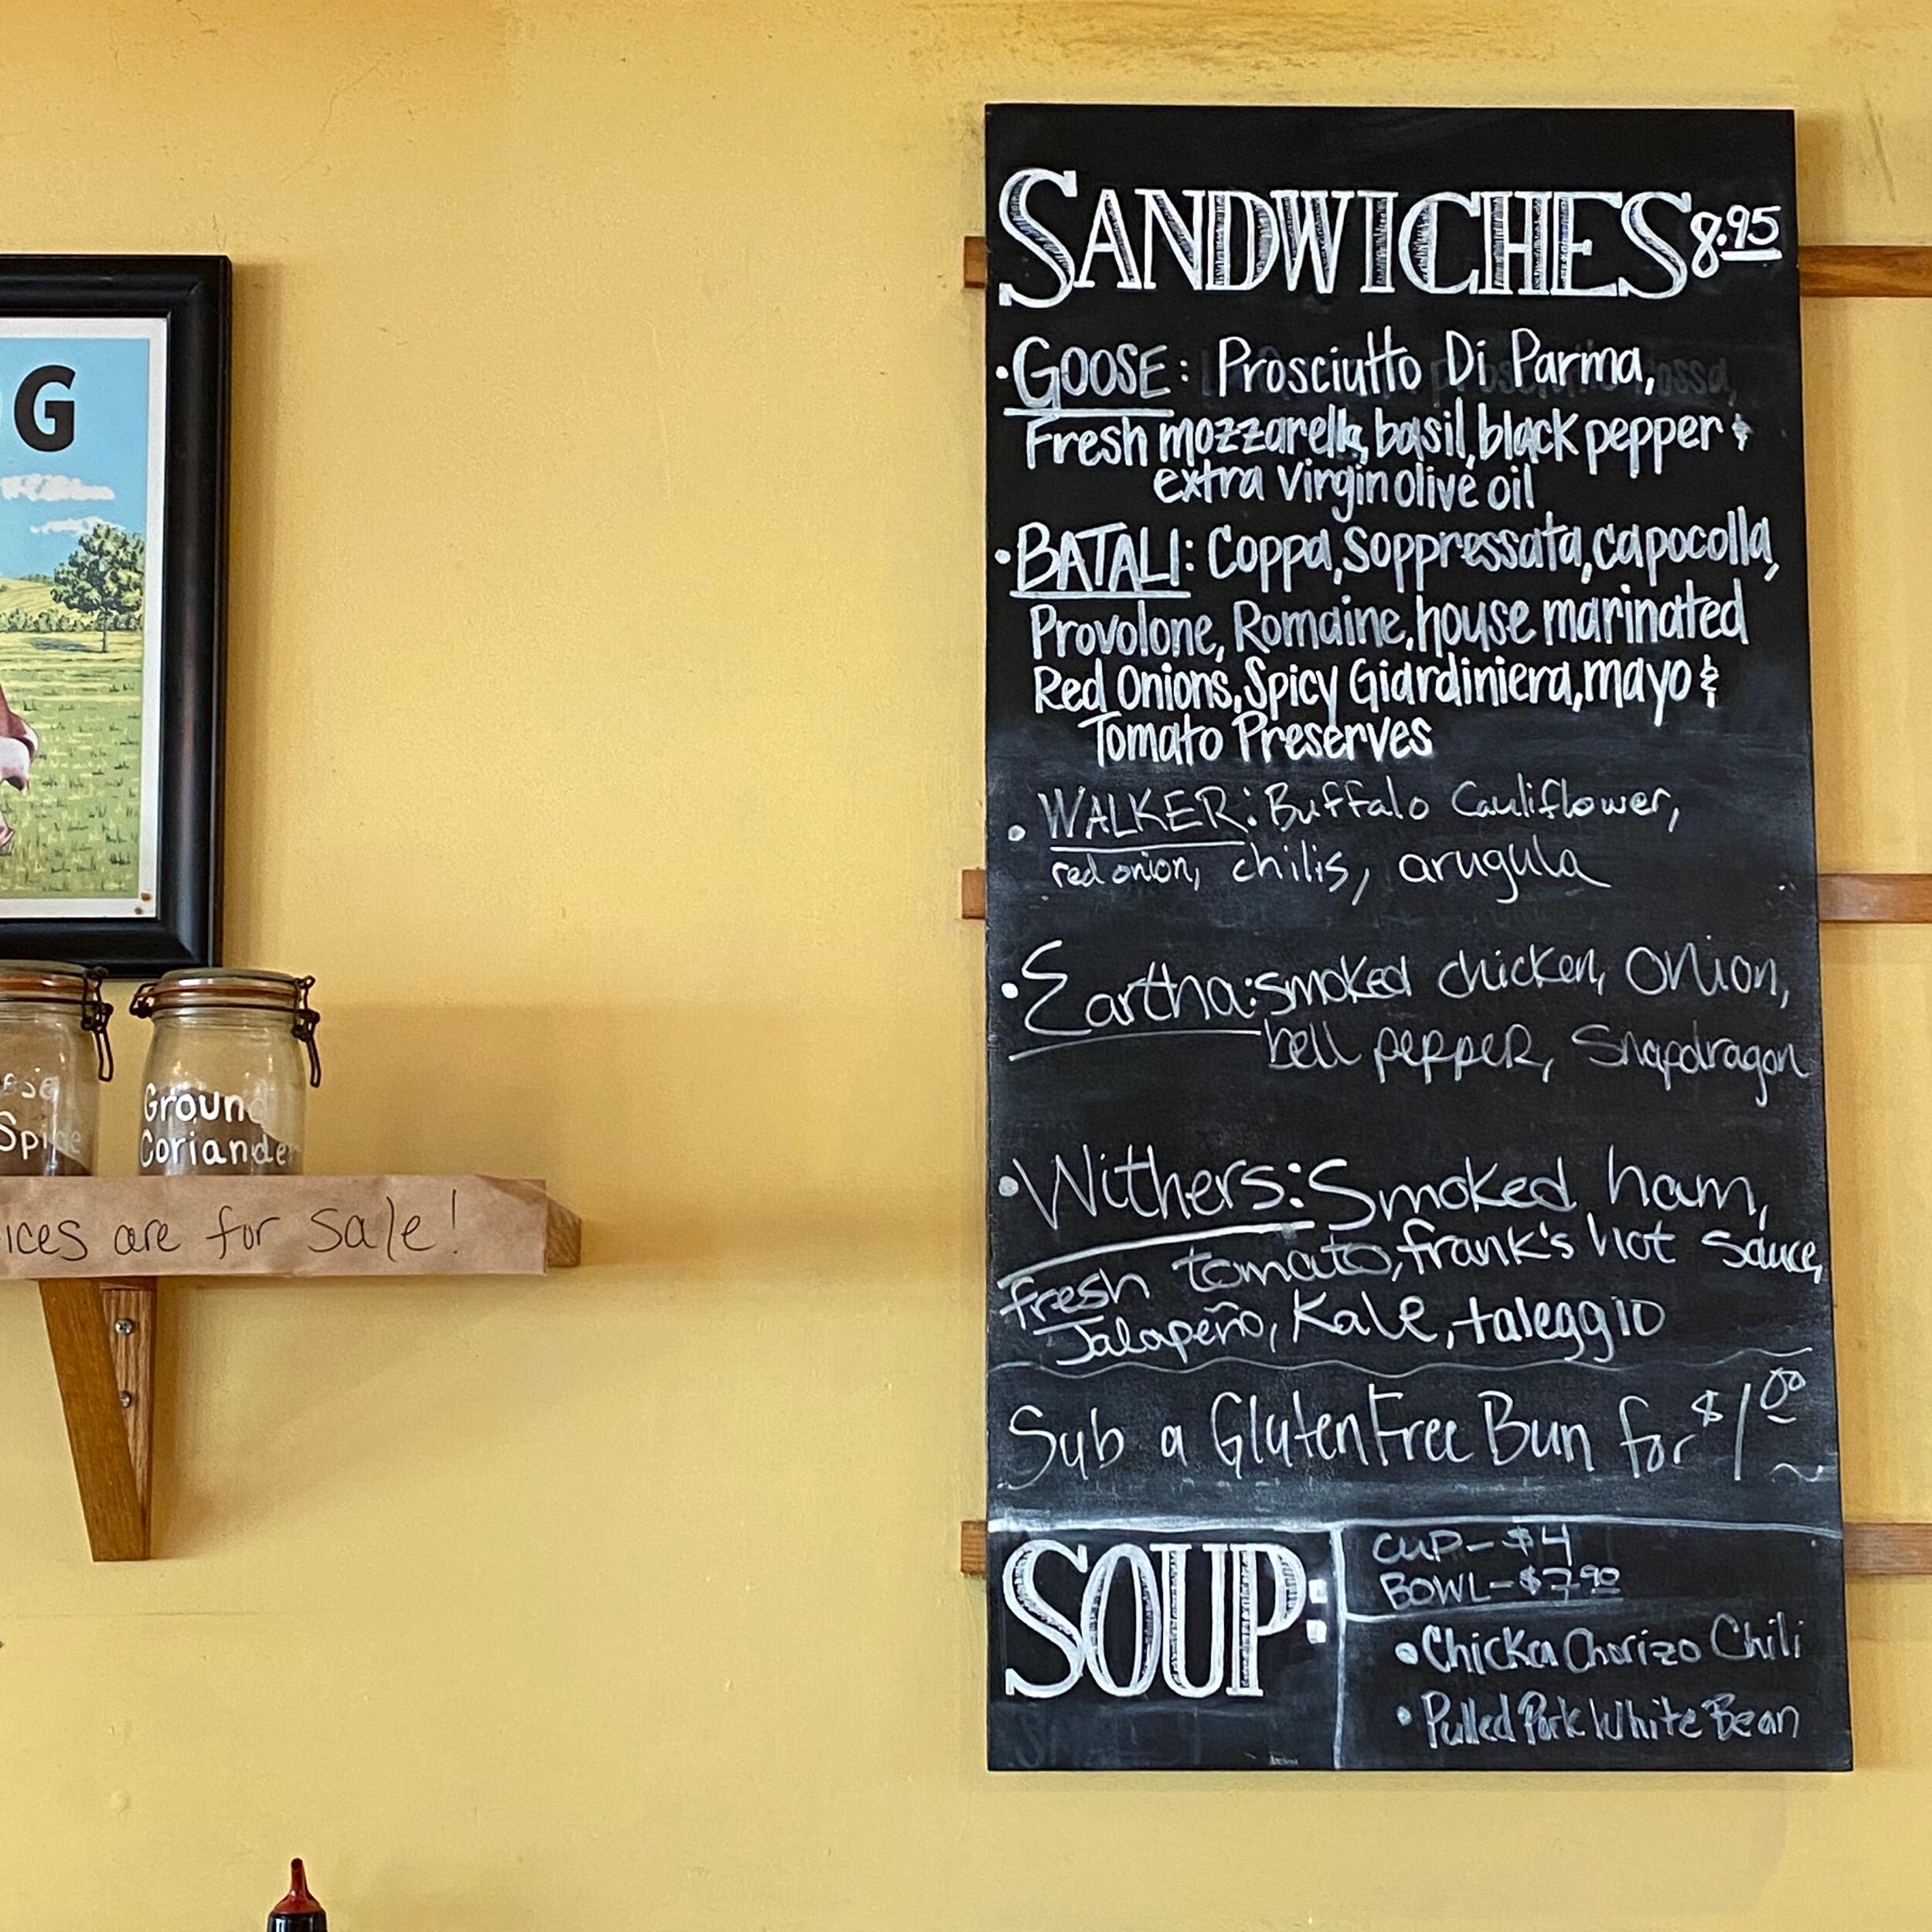 G
Spice
Ground
Coriander
ices are for sale!
SANDWICHES 8.95
• GOOSE: Prosciutto Di Parma,
Fresh mozzarella, basil, black pepper &
extra virgin olive oil
• BATALI: Coppa, Soppressata, capocolla,
Provolone, Romaine, house marinated
Red Onions, Spicy Giardiniera, mayo &
Tomato Preserves
• WALKER: Buffalo Cauliflower,
red onion, chilis, arugula
• Eartha: smoked chicken, onion,
bell pepper, Snapdragon
• Withers: Smoked ham,
fresh tomato, frank's hot sauce,
Jalapeño, Kale, taleggio
Sub a Gluten Free Bun for $1.00
SOUP:
CUP - $4
BOWL - $7.90
• Chicken Chorizo Chili
• Pulled Pork White Bean